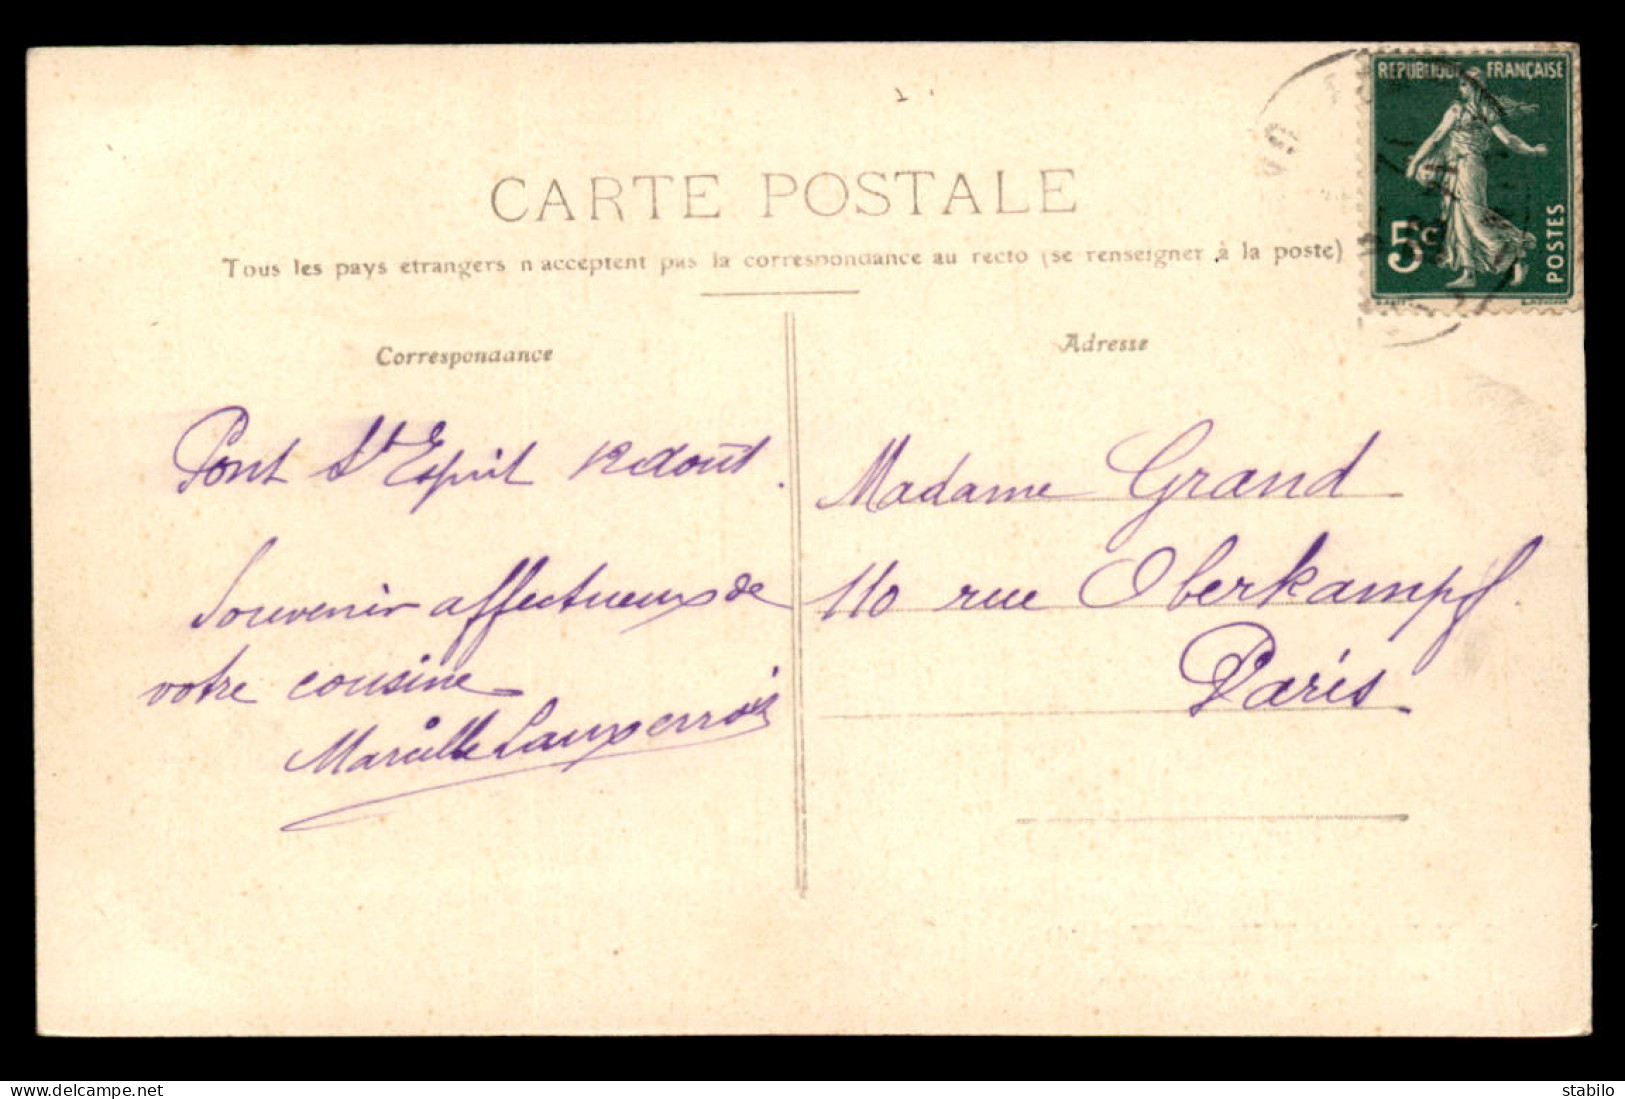 CARTE POSTALE
Tous les pays étrangers n'acceptent pas la correspondance au recto (se renseigner à la poste)
Correspondance
Pont St Esprit 12 août.
Souvenir affectueux de
votre cousine
Marcelle
Adresse
Madame Grand
110 rue Oberkampf.
Paris
REPUBLIQUE FRANÇAISE
5c
POSTES
delcampe.net
stabilo